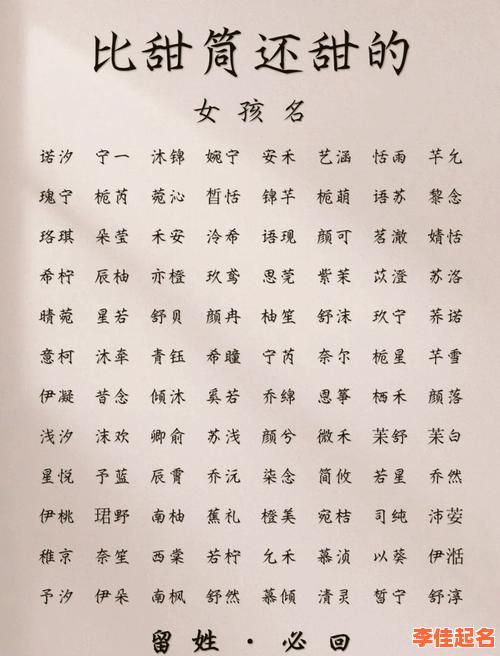 比甜筒还甜的
女孩名
诺汐 宁一 沐锦 婉宁 安禾 艺涵 恬雨 芊允
瑰宁 栀芮 菀沁 皙恬 锦芊 栀萌 语苏 黎念
珞琪 朵莹 禾安 泠希 语现 颜可 茗澈 婧恬
希柠 辰柚 亦橙 玖鸢 思莞 紫茉 苡澄 苏洛
晴菀 星若 舒贝 颜冉 柚笙 舒沫 玖宁 荞诺
意柯 沐牵 青钰 希瞳 宁芮 奈尔 栀星 芊雪
伊凝 昔念 倾沐 奚若 乔绵 思筝 栖禾 颜落
浅汐 沫欢 卿俞 苏浅 颜兮 微禾 茉舒 茉白
星悦 予蓝 辰霄 乔沅 柒念 简攸 若星 乔然
伊桃 珺野 南柚 蕉礼 橙美 宛桔 司纯 沛荌
稚京 奈笙 西棠 若柠 允禾 慕浈 以葵 伊湉
予汐 伊朵 南枫 舒然 慕倾 清灵 皙宁 舒淳
留姓·必回
李佳起名